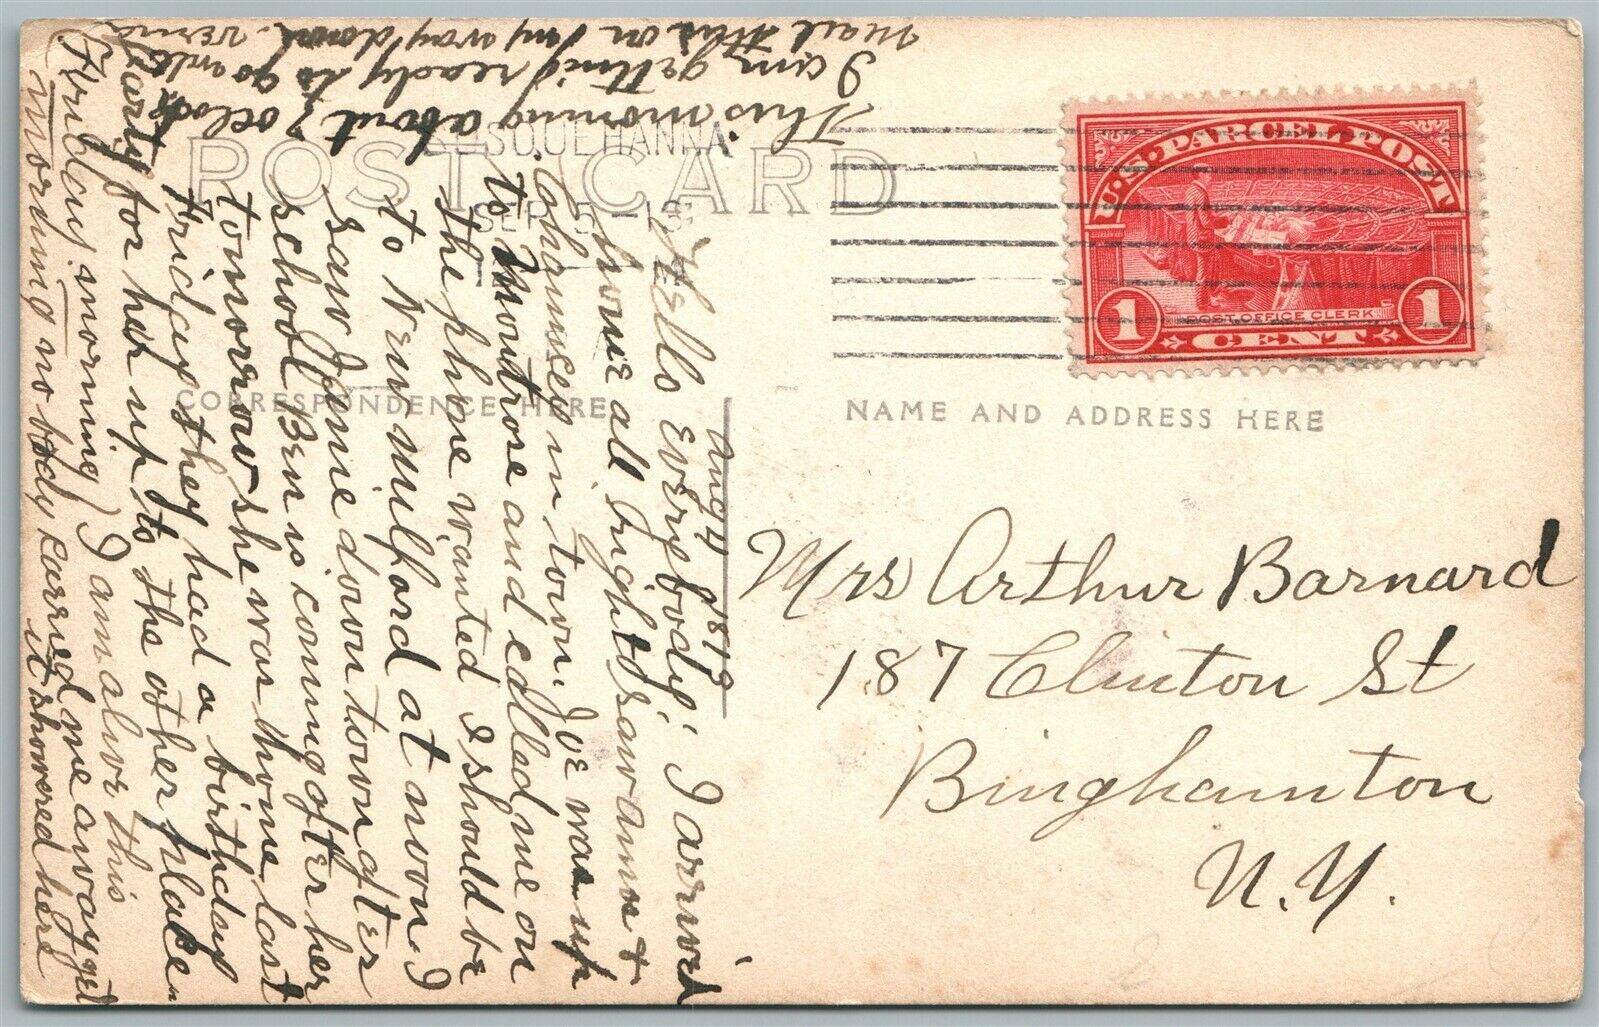 POST CARD
SUSQUEHANNA
SEP 5 - 13
U.S. PARCEL POST
POST OFFICE CLERK
1 CENT 1
CORRESPONDENCE HERE
NAME AND ADDRESS HERE
Mrs Arthur Barnard
187 Clinton St
Binghamton
N.Y.
Aug 4 1813
Hello Everybody' I arrived
home all right saw ans +
Chauncey in town. Joe was up
to Montrose and called me on
the phone wanted I should be
to New Milford at noon. I
saw Jennie down town after
school Ben is coming after her
tomorrow she was home last
Friday they had a birthday
party for her up to the other place
(Friday morning) I am alive this
morning no body carried me away yet
it showered here
This morning about 7 oclock
I am getting ready to go and
mail this on my way down.